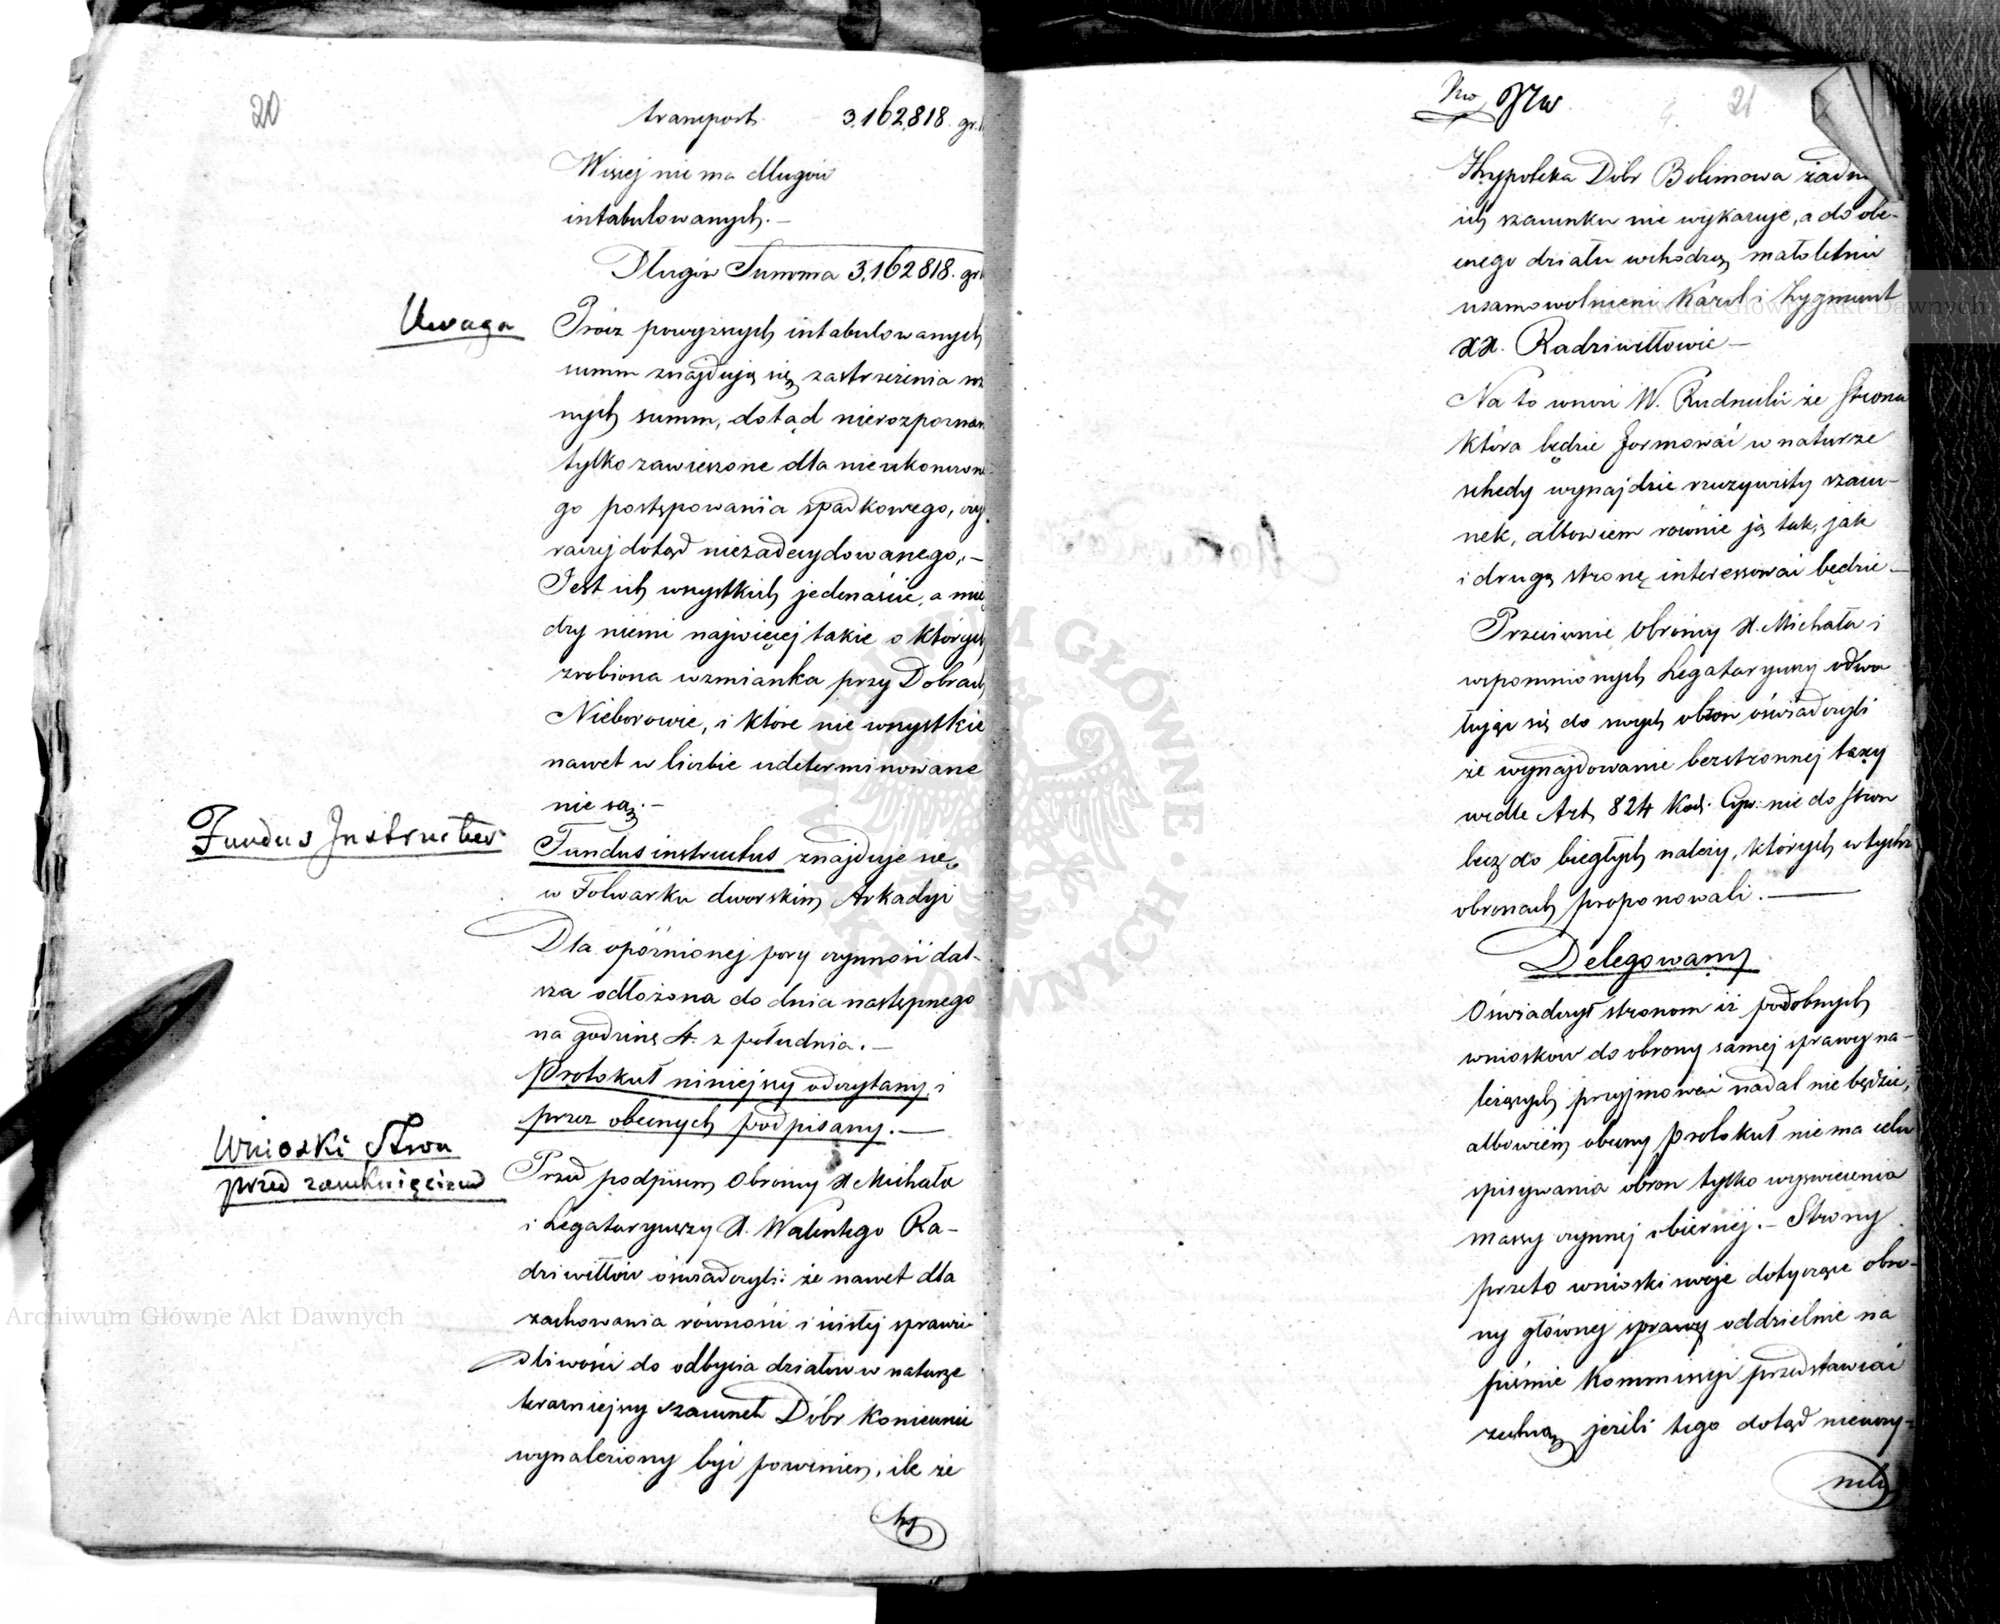 20
transport. 3,162,818. gr.
Więcej nie ma długów
intabulowanych. –
Długów Summa 3,162,818. gr
Uwaga
Prócz powyższych intabulowanych
summ znajdują się zastrzeżenia
nych summ, dotąd nierozpoznan
tylko zawieszone dla nieukończone
go postępowania spadkowego, czy
raczej dotąd niezadecydowanego, –
Jest ich wszystkich jedenaście, a mię
dzy niemi najwięcej takie o których
zrobiona wzmianka przy Dobrach
Nieborowie, i które nie wszystkie
nawet w liczbie udeterminowane
nie są. –
Fundus Instructus
Fundus instructus znajduje się
w Folwarku dworskim Arkadyi
Dla opóźnionej pory czynność dal-
sza odłożona do dnia następnego
na godzinę 4. z południa. –
Protokuł niniejszy odczytany i
przez obecnych podpisany. –
Wnioski Stron
przed zamknięciem
Przed podpisem Obrońcy X Michała
i Legataryuszy X. Walentego Ra-
dziwiłłów oświadczyli: że nawet dla
zachowania równości i ścisłej sprawie-
dliwości do odbycia działów w naturze
teraźniejszy szacunek Dóbr koniecznie
wynaleziony być powinien, ile że
hy
21
Hypoteka Dóbr Bolimowa żadne
ich szacunku nie wykazuje, a do obe-
cnego działu wchodzą małoletni
usamowolnieni Karol i Zygmunt
XX. Radziwiłłowie –
Na to wniósł W. Rudnicki że Strona
która będzie formować w naturze
schedy wynajdzie rzeczywisty szacu-
nek, albowiem równie ją tak, jak
i drugą stronę interessować będzie –
Przeciwnie Obrońcy X. Michała i
wspomnionych Legataryuszy odwo
łując się do swych obron oświadczyli
że wynajdowanie bezstronnej taxy
wedle Art. 824 Kod. Cyw. nie do Stron
lecz do biegłych należy, których w tychże
obronach proponowali. –
Delegowany
Oświadczył stronom iż podobnych
wniosków do obrony samej sprawy na-
leżących przyjmować nadal nie będzie,
albowiem obecny protokuł nie ma celu
spisywania obron tylko wyświecenia
massy czynnej i biernej. – Strony
przeto wnioski swoje dotyczące obro-
ny głównej sprawy oddzielnie na
piśmie Kommissyi przedstawiać
zechcą, jeżeli tego dotąd nieuczy-
nili
Archiwum Główne Akt Dawnych
Archiwum Główne Akt Dawnych
ARCHIWUM GŁÓWNE AKT DAWNYCH